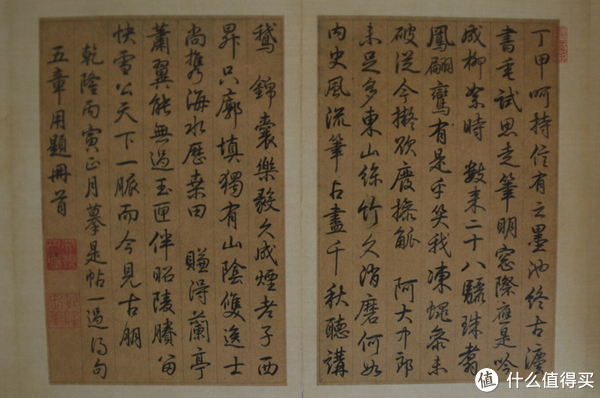 丁甲呵持信有之墨池終古
書試思走筆明窓際應是吟
成柳絮時 數來二十八驪珠翥
鳳翩鸞有是乎笑我凍蠅參未
破從今擬欲廢操觚 阿大中郎
未足多東山絲竹久消磨何如
内史風流筆占盡千秋聽講
鵞 錦囊樂毅久成煙老子西
昇只廓填獨有山陰雙逸士
尚攜海水歷桑田 賺得蘭亭
蕭翼能無過玉匣伴昭陵賸留
快雪公天下一脈而今見古朋
乾隆丙寅正月摹是帖一過得句
五章用題冊首
值 什么值得买